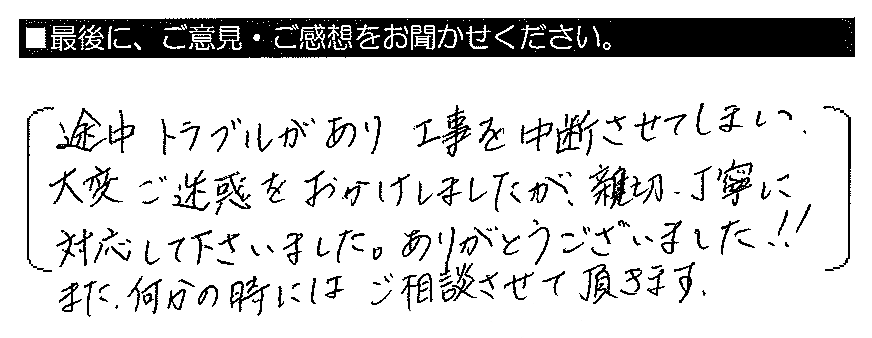 ■最後に、ご意見・ご感想をお聞かせください。
途中 トラブルがあり 工事を中断させてしまい、
大変ご迷惑をおかけしましたが、親切、丁寧に
対応して下さいました。ありがとうございました!!
また、何かの時には ご相談させて頂きます。